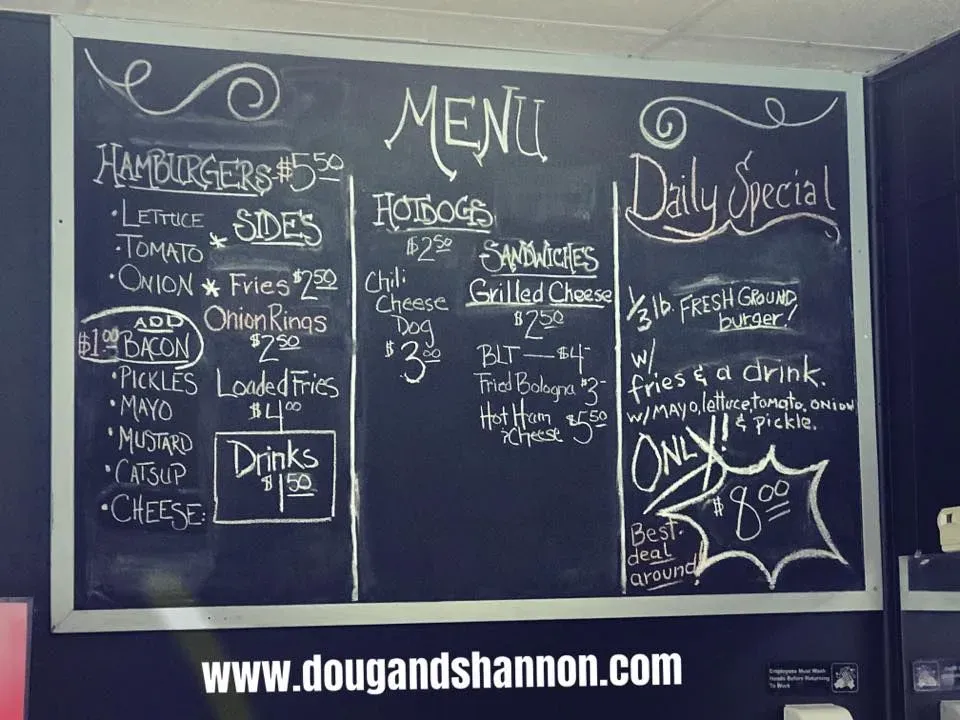 MENU
HAMBURGERS $5.50
• LETTUCE
• TOMATO
• ONION
ADD
$1.00 BACON
• PICKLES
• MAYO
• MUSTARD
• CATSUP
• CHEESE:
* SIDES
* Fries $2.50
Onion Rings
$2.50
Loaded Fries
$4.00
Drinks
$1.50
HOTDOGS
$2.50
Chili
Cheese
Dog
$3.00
SANDWICHES
Grilled Cheese
$2.50
BLT — $4-
Fried Bologna $3-
Hot Ham $5.50
& Cheese
Daily Special
1/3 lb. FRESH GROUND
burger!
w/
fries & a drink.
w/ MAYO, lettuce, tomato, ONION
& pickle.
ONLY!!
$8.00
Best
deal
around
www.dougandshannon.com
Employees Must Wash
Hands Before Returning
To Work